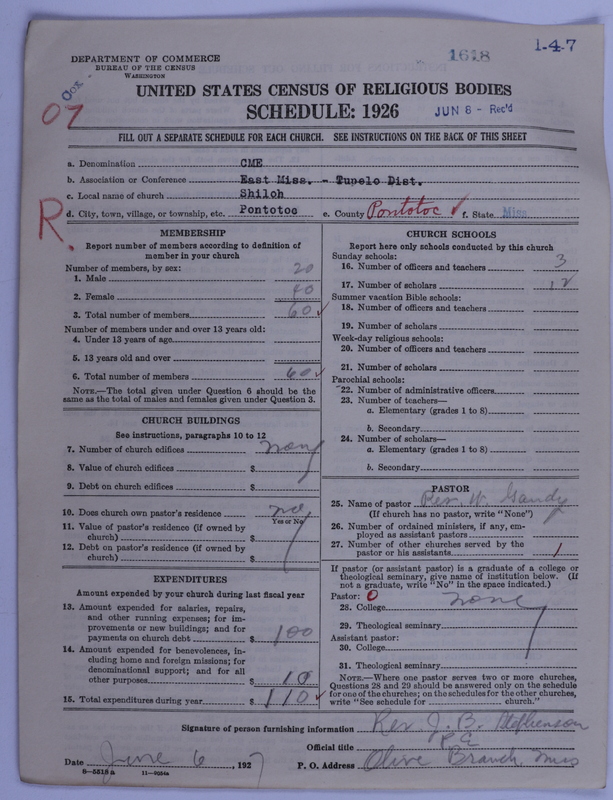 1618
1-4-7
DEPARTMENT OF COMMERCE
BUREAU OF THE CENSUS
WASHINGTON
Cox -
07
UNITED STATES CENSUS OF RELIGIOUS BODIES
SCHEDULE: 1926
JUN 8 - Rec'd
FILL OUT A SEPARATE SCHEDULE FOR EACH CHURCH. SEE INSTRUCTIONS ON THE BACK OF THIS SHEET
a. Denomination CME
b. Association or Conference East Miss. - Tupelo Dist.
c. Local name of church Shiloh
R.
d. City, town, village, or township, etc. Pontotoc e. County Pontotoc ✓ f. State Miss
MEMBERSHIP
Report number of members according to definition of
member in your church
Number of members, by sex:
1. Male 20
2. Female 40
3. Total number of members 60 ✓
Number of members under and over 13 years old:
4. Under 13 years of age
5. 13 years old and over
6. Total number of members 60 ✓
NOTE.—The total given under Question 6 should be the
same as the total of males and females given under Question 3.
CHURCH BUILDINGS
See instructions, paragraphs 10 to 12
7. Number of church edifices none
8. Value of church edifices $
9. Debt on church edifices $
10. Does church own pastor's residence no
Yes or No
11. Value of pastor's residence (if owned by
church) $
12. Debt on pastor's residence (if owned by
church) $
EXPENDITURES
Amount expended by your church during last fiscal year
13. Amount expended for salaries, repairs,
and other running expenses; for im-
provements or new buildings; and for
payments on church debt $ 100
14. Amount expended for benevolences, in-
cluding home and foreign missions; for
denominational support; and for all
other purposes $ 10
15. Total expenditures during year $ 110 ✓
CHURCH SCHOOLS
Report here only schools conducted by this church
Sunday schools:
16. Number of officers and teachers 3
17. Number of scholars 12
Summer vacation Bible schools:
18. Number of officers and teachers
19. Number of scholars
Week-day religious schools:
20. Number of officers and teachers
21. Number of scholars
Parochial schools:
22. Number of administrative officers
23. Number of teachers—
a. Elementary (grades 1 to 8)
b. Secondary
24. Number of scholars—
a. Elementary (grades 1 to 8)
b. Secondary
PASTOR
25. Name of pastor Rev. W. Gandy
(If church has no pastor, write "None")
26. Number of ordained ministers, if any, em-
ployed as assistant pastors
27. Number of other churches served by the
pastor or his assistants 1
If pastor (or assistant pastor) is a graduate of a college or
theological seminary, give name of institution below. (If
not a graduate, write "No" in the space indicated.)
Pastor: 0
28. College none
29. Theological seminary
Assistant pastor:
30. College
31. Theological seminary
NOTE.—Where one pastor serves two or more churches,
Questions 28 and 29 should be answered only on the schedule
for one of the churches; on the schedules for the other churches,
write "See schedule for church."
Signature of person furnishing information Rev J. B. Stephenson
Official title P.E
Date June 6, 1927 P. O. Address Olive Branch, Miss
8—5518a 11—9084a